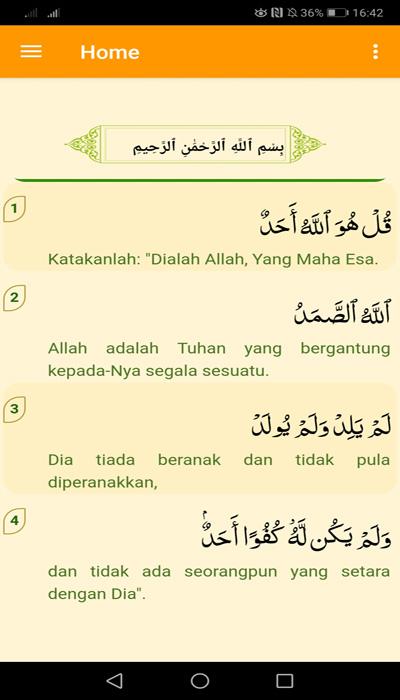 36% 16:42
Home
بِسْمِ ٱللَّهِ ٱلرَّحْمَٰنِ ٱلرَّحِيمِ
1
قُلْ هُوَ ٱللَّهُ أَحَدٌ
Katakanlah: "Dialah Allah, Yang Maha Esa.
2
ٱللَّهُ ٱلصَّمَدُ
Allah adalah Tuhan yang bergantung
kepada-Nya segala sesuatu.
3
لَمْ يَلِدْ وَلَمْ يُولَدْ
Dia tiada beranak dan tidak pula
diperanakkan,
4
وَلَمْ يَكُن لَّهُۥ كُفُوًا أَحَدٌۢ
dan tidak ada seorangpun yang setara
dengan Dia".